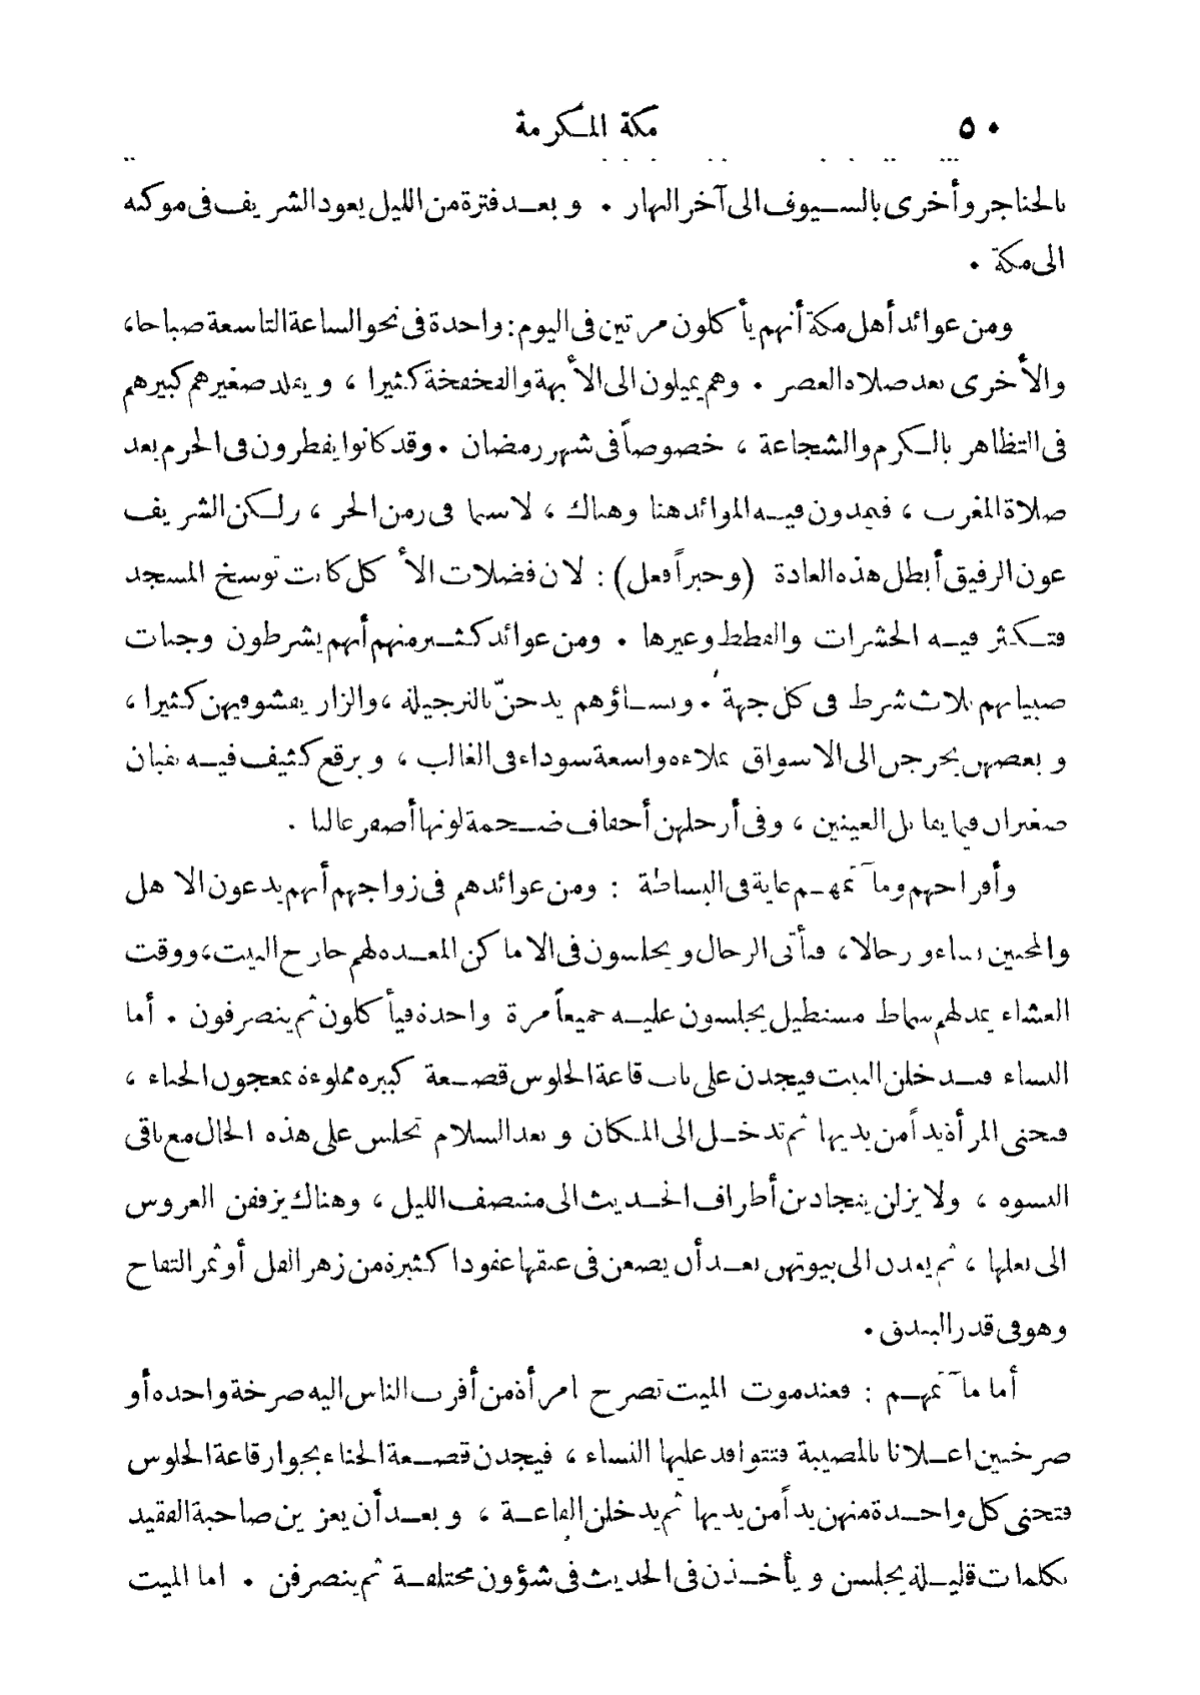 ٥٠ مكة المكرمة
بالخناجر وأخرى بالسيوف الى آخر النهار . وبعد فترة من الليل يعود الشريف فى موكبه
الى مكة .
ومن عوائد أهل مكة أنهم يأكلون مرتين فى اليوم : واحدة فى نحو الساعة التاسعة صباحا ،
والأخرى بعد صلاة العصر . وهم يميلون الى الأبهة والفخفخة كثيرا ، ويقلد صغيرهم كبيرهم
فى التظاهر بالكرم والشجاعة ، خصوصاً فى شهر رمضان . وقد كانوا يفطرون فى الحرم بعد
صلاة المغرب ، فيمدون فيه الموائد هنا وهناك ، لا سيما فى زمن الحر ، ولكن الشريف
عون الرفيق أبطل هذه العادة (وخيراً فعل) : لان فضلات الأكل كانت توسخ المسجد
فتكثر فيه الحشرات والقطط وغيرها . ومن عوائد كثير منهم أنهم يشرطون وجنات
صبيانهم ثلاث شرط فى كل جهة . ونساؤهم يدخنّ بالنرجيلة ، والزار يفشو فيهن كثيرا ،
وبعضهن يخرجن الى الاسواق بملاءة واسعة سوداء فى الغالب ، وبرقع كثيف فيه ثقبان
صغيران فيما يقابل العينين ، وفى أرجلهن أخفاف ضخمة لونها أصفر غالبا .
وأفراحهم ومآتمهم غاية فى البساطة : ومن عوائدهم فى زواجهم أنهم يدعون الاهل
والمحبين نساء ورجالا ، فيأتى الرجال ويجلسون فى الاماكن المعدة لهم خارج البيت ، ووقت
العشاء يمد لهم سماط مستطيل يجلسون عليه جميعاً مرة واحدة فيأكلون ثم ينصرفون . أما
النساء فيدخلن البيت فيجدن على باب قاعة الجلوس قصعة كبيرة مملوءة بمعجون الحناء ،
فتحنى المرأة يداً من يديها ثم تدخل الى المكان وبعد السلام تجلس على هذه الحال مع باقى
النسوة ، ولا يزلن يتجاذبن أطراف الحديث الى منتصف الليل ، وهناك يزففن العروس
الى بعلها ، ثم يعدن الى بيوتهن بعد أن يضعن فى عنقها عقودا كثيرة من زهر الفل أو ثمر التفاح
وهو فى قدر البندق .
أما مآتمهم : فعند موت الميت تصرخ امرأة من أقرب الناس اليه صرخة واحدة أو
صرختين اعلانا بالمصيبة فتتوافد عليها النساء ، فيجدن قصعة الحناء بجوار قاعة الجلوس
فتحنى كل واحدة منهن يداً من يديها ثم يدخلن القاعة ، وبعد أن يعزين صاحبة الفقيد
بكلمات قليلة يجلسن ويأخذن فى الحديث فى شؤون مختلفة ثم ينصرفن . اما الميت